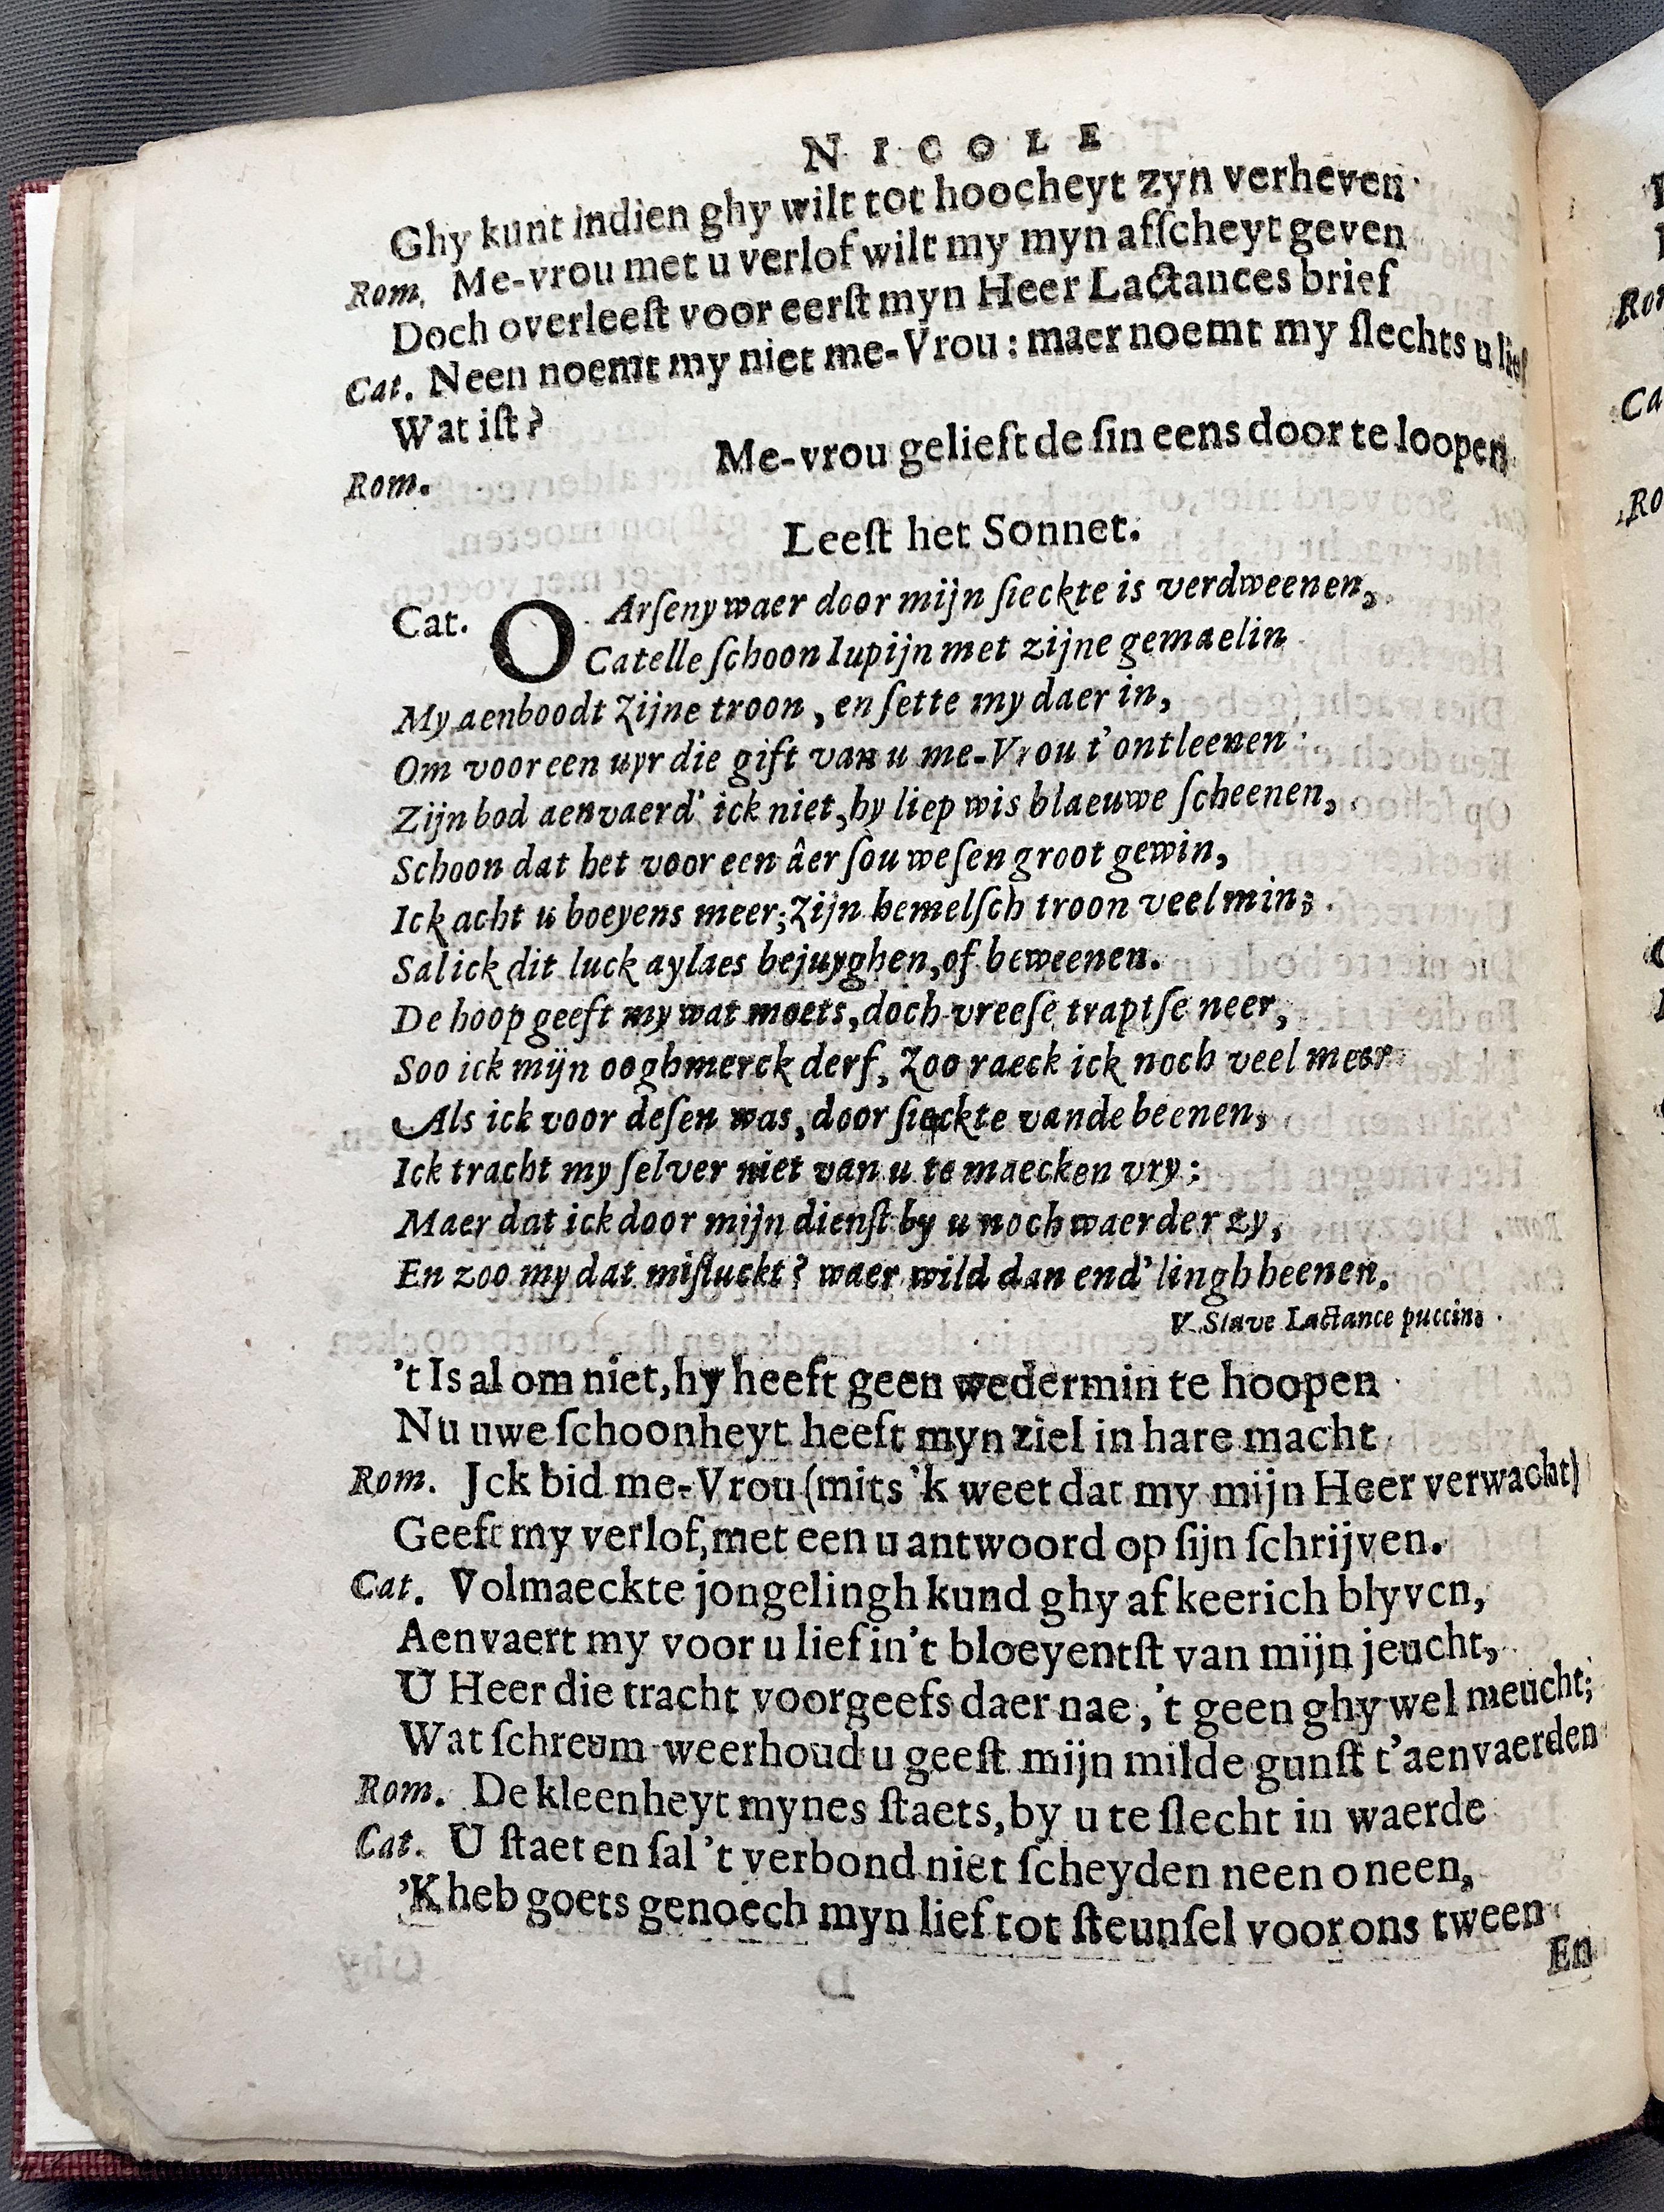 NICOLE
Ghy kunt indien ghy wilt tot hoocheyt zyn verheven
Rom. Me-vrou met u verlof wilt my myn affcheyt geven
Doch overleeſt voor eerſt myn Heer Lactances brief
Cat. Neen noemt my niet me-Vrou : maer noemt my ſlechts u lief
Wat iſt?
Rom. Me-vrou gelieft de ſin eens door te loopen
Leeſt het Sonnet.
Cat. O Arſeny waer door mijn ſieckte is verdweenen,
Catelle ſchoon Iupijn met zijne gemaelin
My aenboodt zijne troon, en ſette my daer in,
Om voor een uyr die gift van u me-Vrou t'ontleenen
Zijn bod aenvaerd' ick niet, hy liep wis blaeuwe ſcheenen,
Schoon dat het voor een âer ſou weſen groot gewin,
Ick acht u boeyens meer; zijn hemelſch troon veel min;
Sal ick dit luck aylaes bejuyghen, of beweenen.
De hoop geeft my wat moets, doch vreeſe traptſe neer,
Soo ick mijn ooghmerck derf, zoo raeck ick noch veel meer
Als ick voor deſen was, door ſieckte vande beenen,
Ick tracht my ſelver niet van u te maecken vry:
Maer dat ick door mijn dienſt by u noch waerder zy,
En zoo my dat miſluckt? waer wild dan end'lingh heenen.
V Slave Lactance puccini
't Is al om niet, hy heeft geen wedermin te hoopen
Nu uwe ſchoonheyt heeft myn ziel in hare macht
Rom. Jck bid me-Vrou (mits 'k weet dat my mijn Heer verwacht)
Geeft my verlof, met een u antwoord op ſijn ſchrijven.
Cat. Volmaeckte jongelingh kund ghy afkeerich blyven,
Aenvaert my voor u lief in't bloeyentſt van mijn jeucht,
U Heer die tracht voorgeefs daer nae, 't geen ghy wel meucht;
Wat ſchreum weerhoud u geeſt mijn milde gunſt t'aenvaerden
Rom. De kleenheyt mynes ſtaets, by u te ſlecht in waerde
Cat. U ſtaet en ſal 't verbond niet ſcheyden neen o neen,
'K heb goets genoech myn lief tot ſteunſel voor ons tween
En